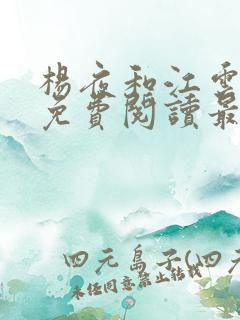 楊夜和江雪
免費閱讀最
四元島子(四元
未經同意禁止轉載